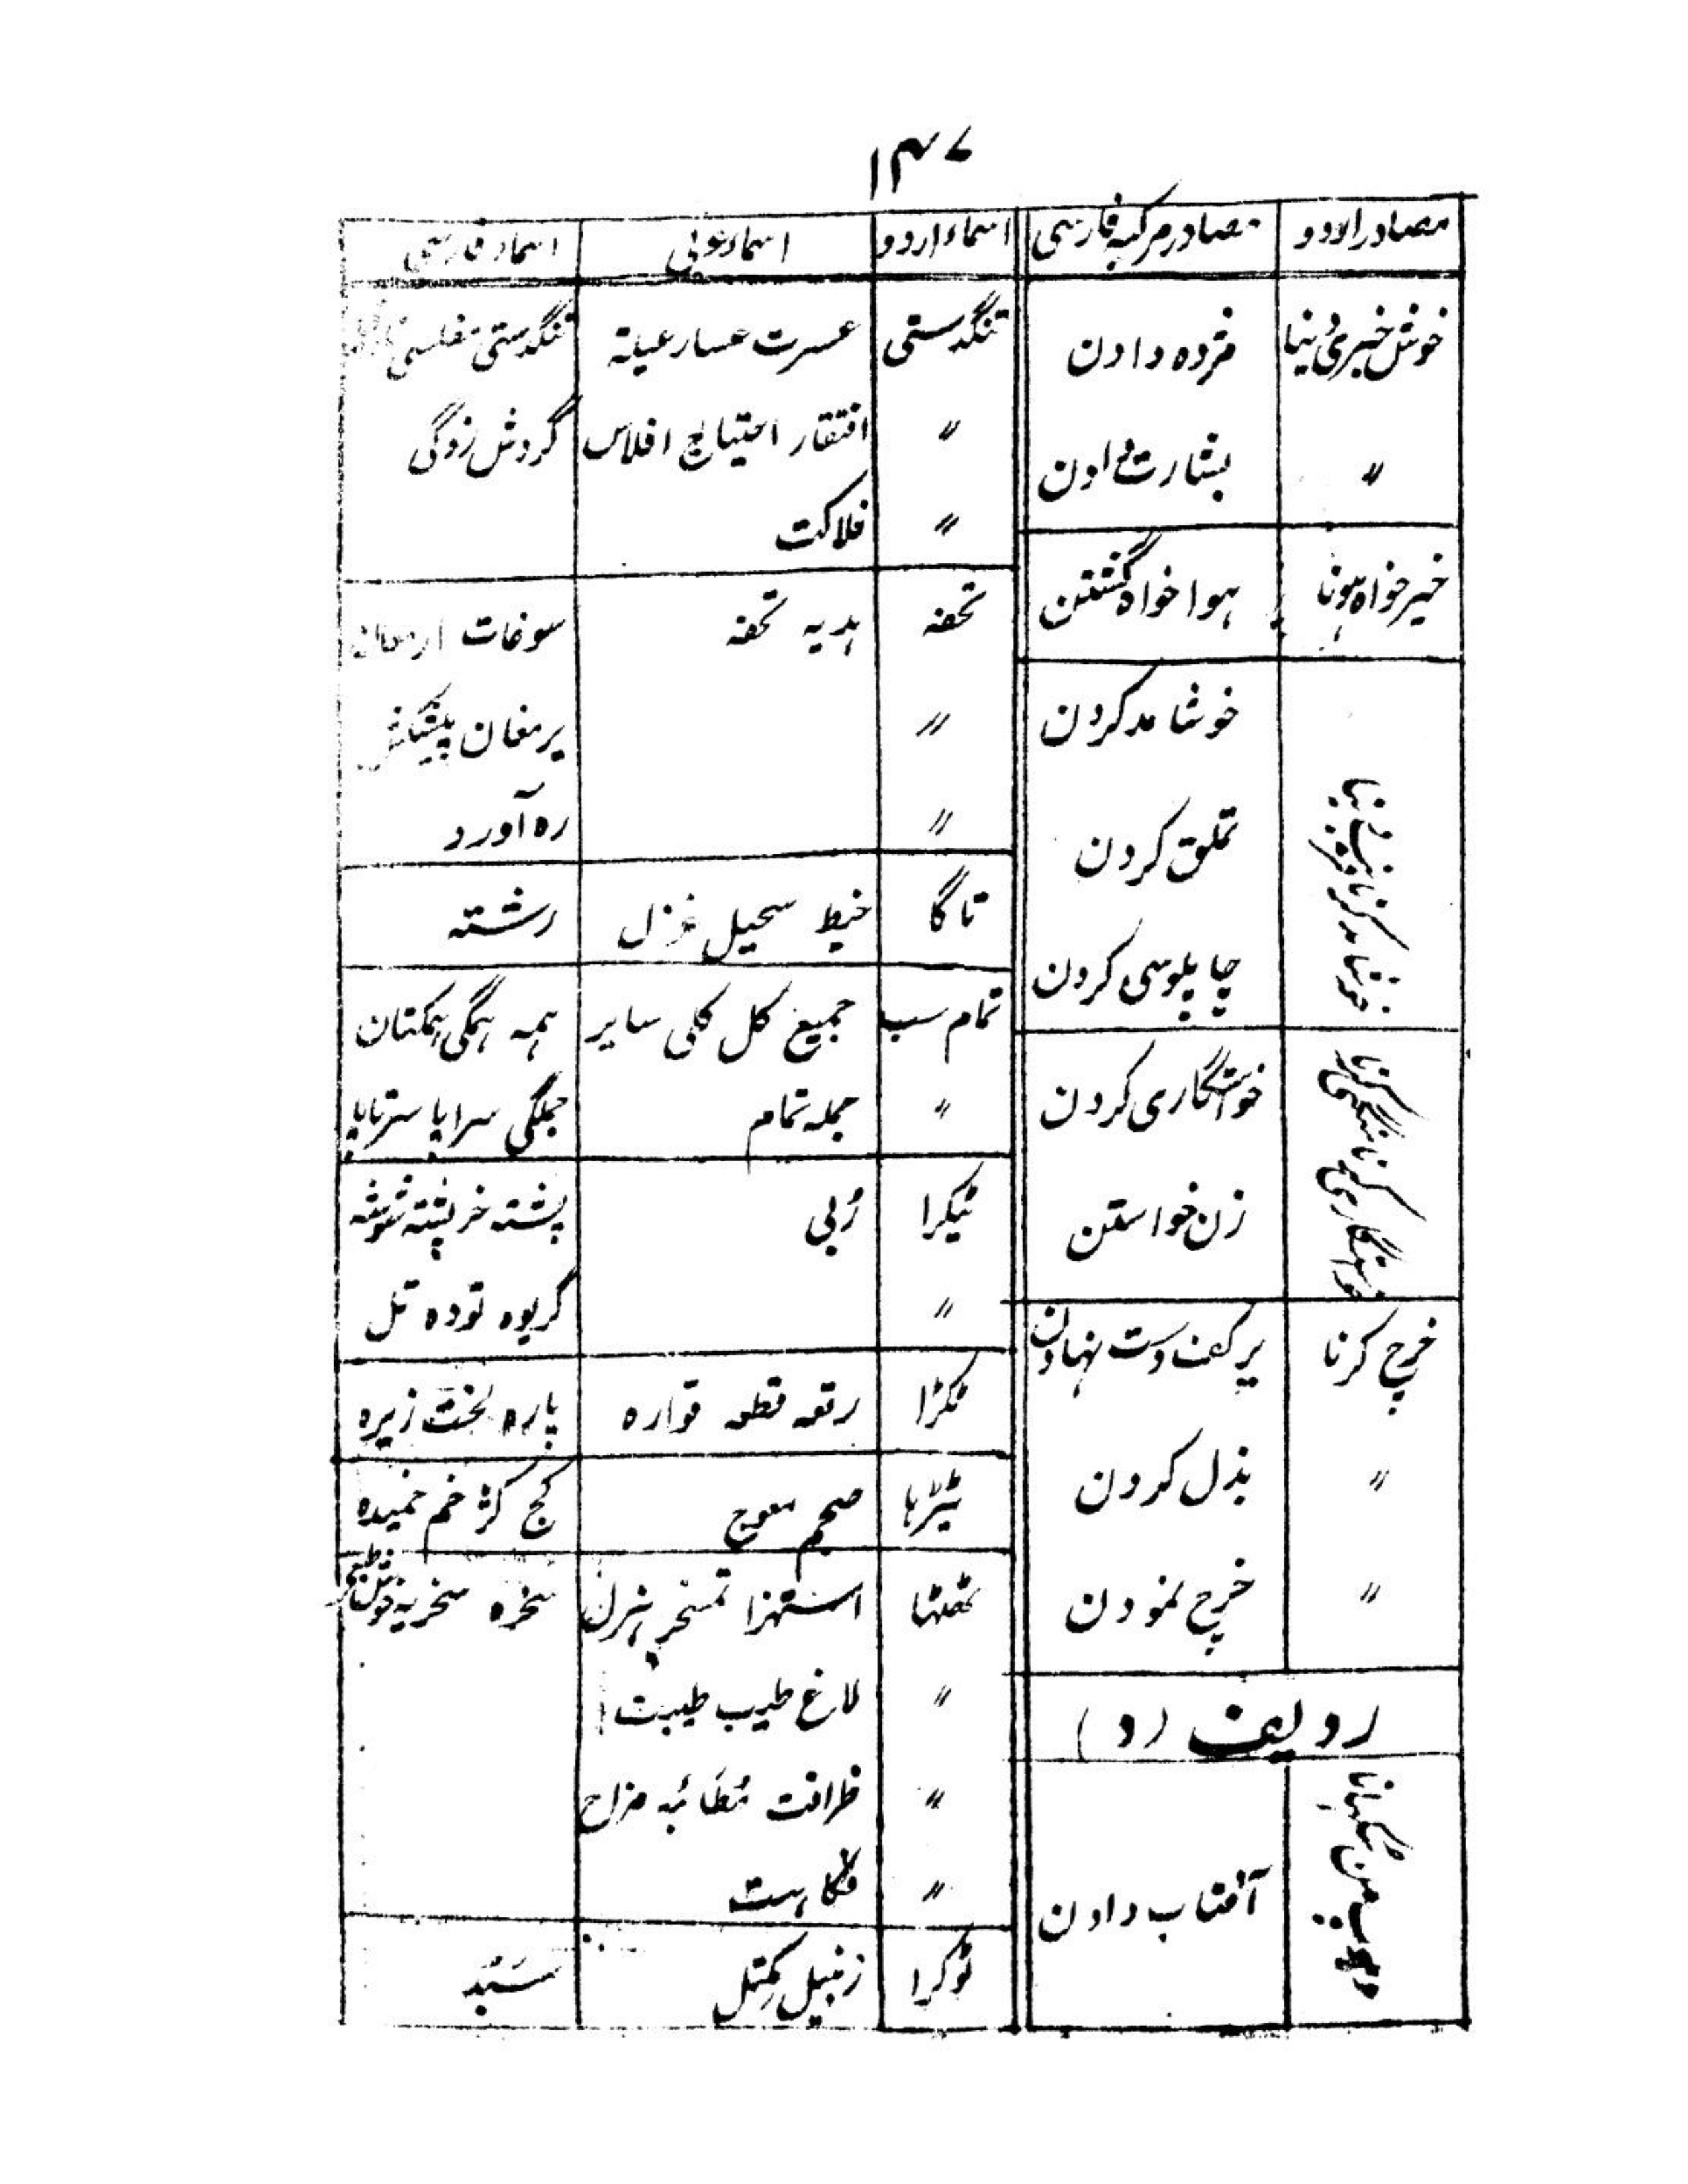 ۱۴۷
مصادر اردو | مصادر مرکبہ فارسی | اسماء اردو | اسماء عربی | اسماء فارسی
خوش خبری دینا | مژدہ دادن
〃 | بشارت دادن
خیر خواہ ہونا | ہوا خواہ گشتن
خوشامد کردن
تملق کردن
چاپلوسی کردن
خواستگاری کردن
زن خواستن
خرچ کرنا | برکف دست نہادن
〃 | بذل کردن
〃 | خرچ نمودن
ردیف (د)
دھوپ میں سکھانا | آفتاب دادن
تنگدستی | عسرت عسار عیلۃ | تنگدستی مفلسی
〃 | افتقار احتیاج افلاس | گردش زدگی
〃 | فلاکت
تحفہ | ہدیہ تحفہ | سوغات ارمغان
〃 | یرمغان پیشکش
〃 | رہ آورد
تاگا | خیط سحیل غزل | رشتہ
تمام سب | جمیع کل کلی سایر | ہمہ ہمگی ہمگنان
〃 | جملہ تمام | جملگی سراپا سرتاپا
ٹیکرا | رُبی | پشتہ خرپشتہ شوشہ
〃 | گریوہ تودہ تل
ٹکڑا | رقعہ قطعہ قوارہ | پارہ لخت زیرہ
ٹیڑھا | معوج | کج کژ خم خمیدہ
ٹھٹھا | استہزا تمسخر ہزل | سخرہ سخریہ خوش طبعی
〃 | لاغ طیب طیبت
〃 | ظرافت مُطائبہ مزاح
〃 | فکاہت
ٹوکرا | زنبیل مِکتل | سَبَد